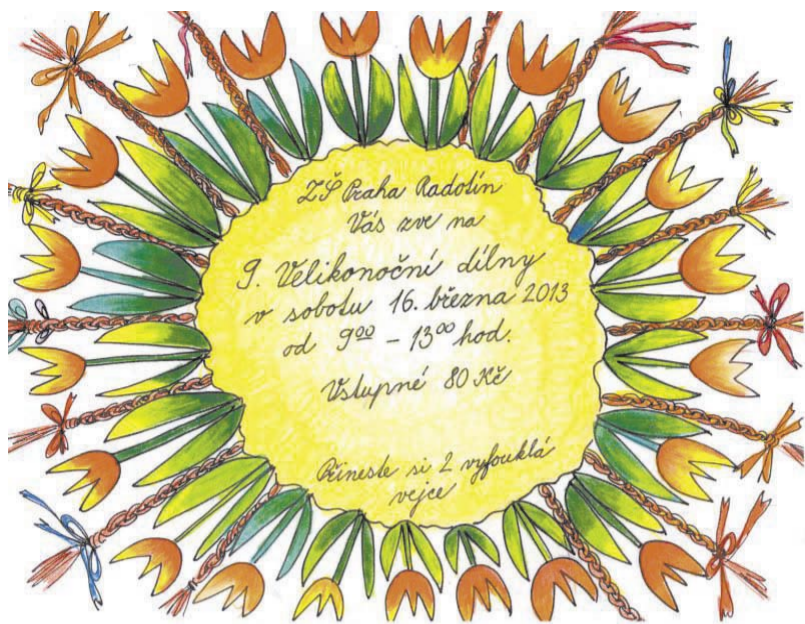 ZŠ Praha Radotín
Vás zve na
9. Velikonoční dílny
v sobotu 16. března 2013
od 9⁰⁰ - 13⁰⁰ hod.
Vstupné 80 Kč
Přineste si 2 vyfouklá
vejce